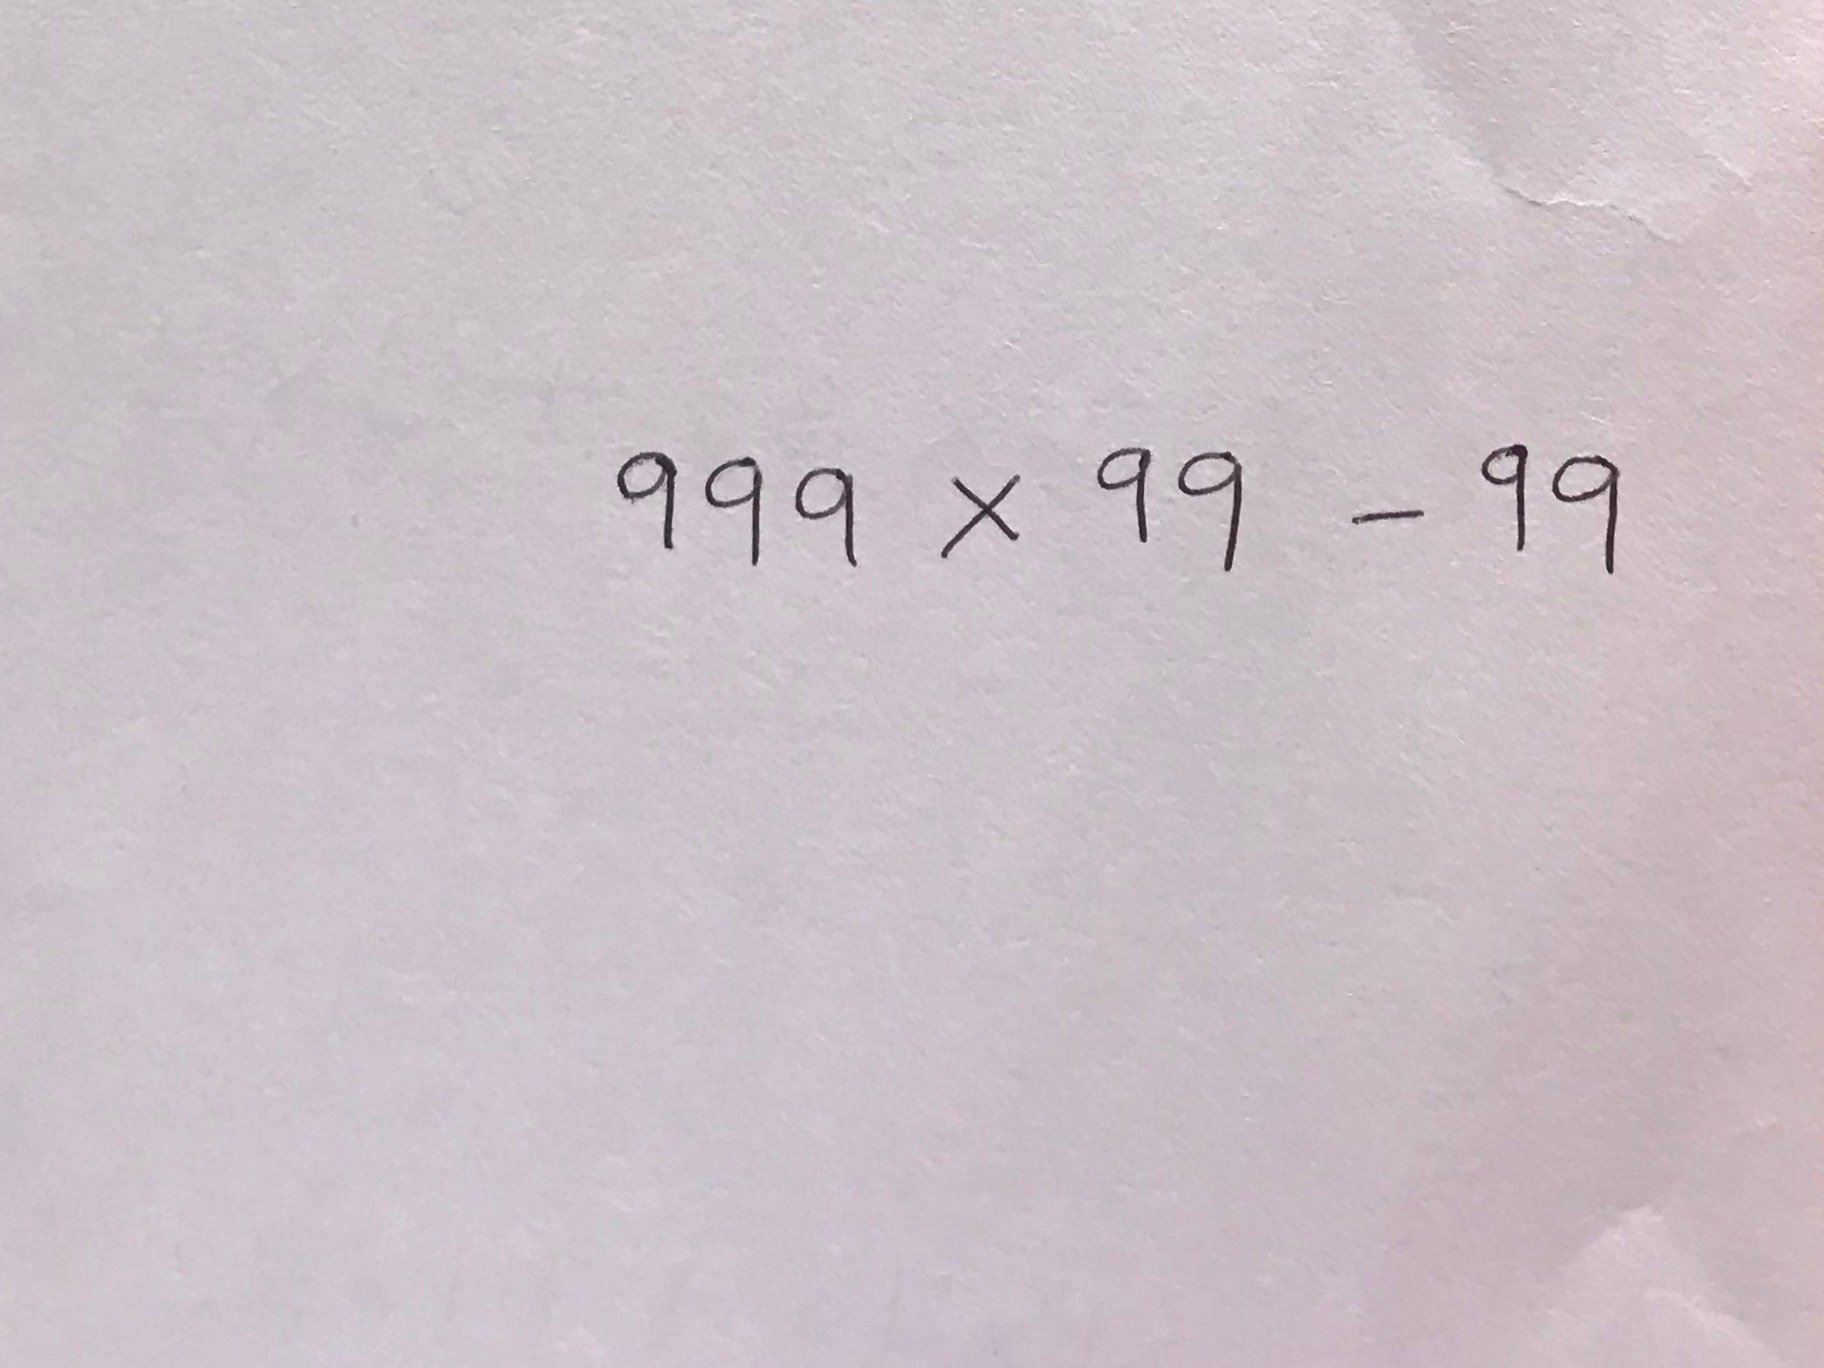 999 × 99 - 99